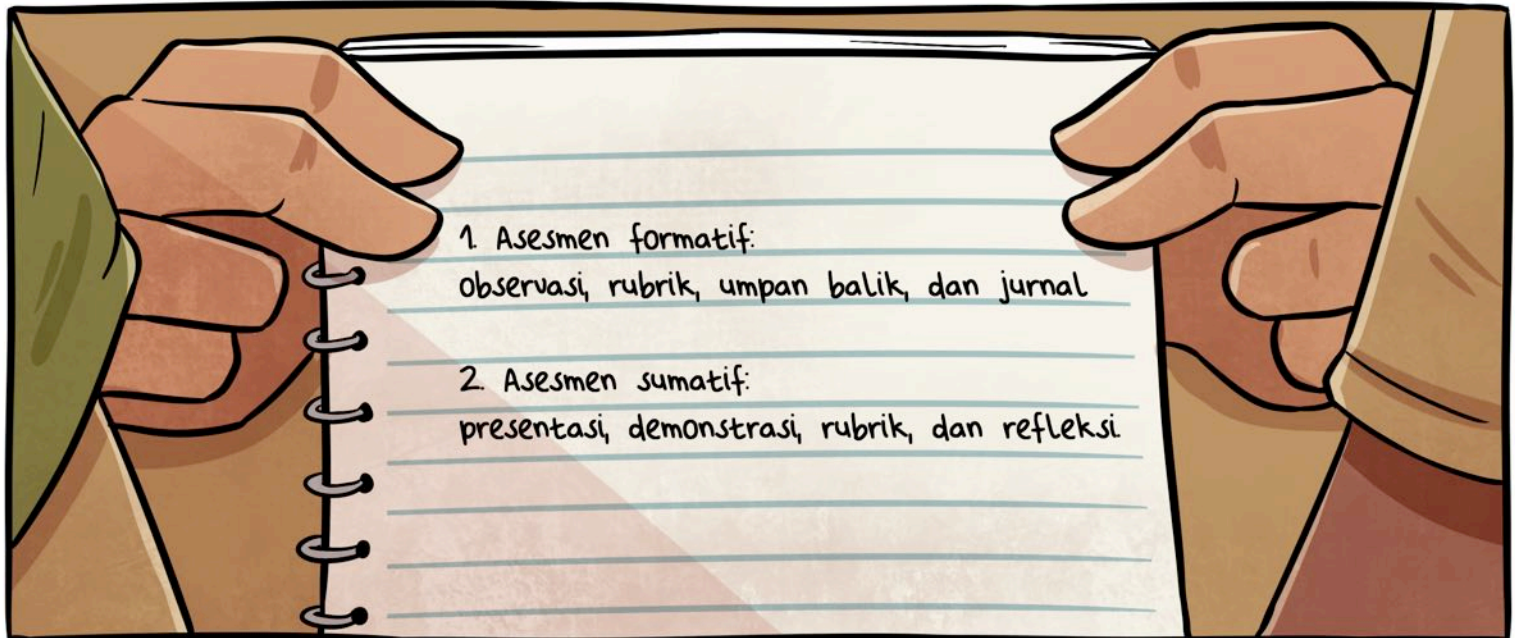 1. Asesmen formatif:
observasi, rubrik, umpan balik, dan jurnal
2. Asesmen sumatif:
presentasi, demonstrasi, rubrik, dan refleksi.